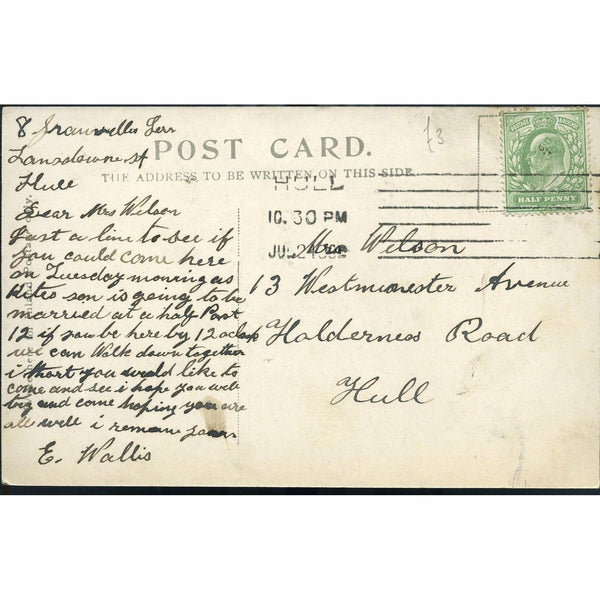 8 Terr
Lansdowne st
Hull
POST CARD.
THE ADDRESS TO BE WRITTEN ON THIS SIDE.
£3
HALF PENNY
HULL
10.30 PM
JU 24
Dear Mrs Wilson
Just a line to see if
you could come here
on Tuesday morning as
son is going to be
married at a half Past
12 if you be here by 12 oclock
we can Walk down together
i thort you would like to
come and see i hope you will
try and come hoping you are
all well i remane yours
E. Wallis
Mrs Wilson
13 Westminester Avenue
Holderness Road
Hull